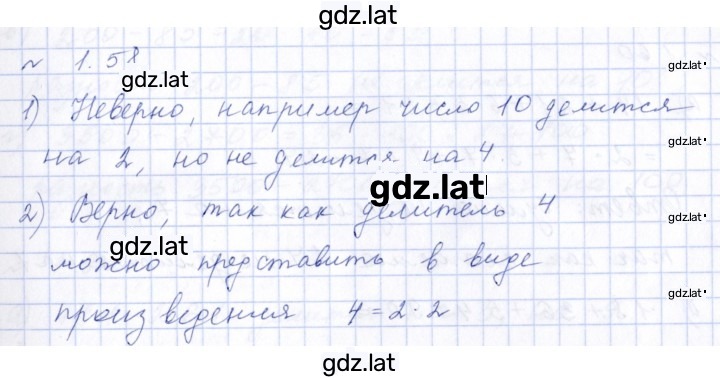 gdz.lat
№ 1.58
gdz.lat
gdz.lat
1) Неверно, например число 10 делится
gdz.lat
на 2, но не делится на 4.
gdz.lat
2) Верно, так как делитель 4
gdz.lat
gdz.lat
можно представить в виде
gdz.lat
произведения 4 = 2 · 2
gdz.lat